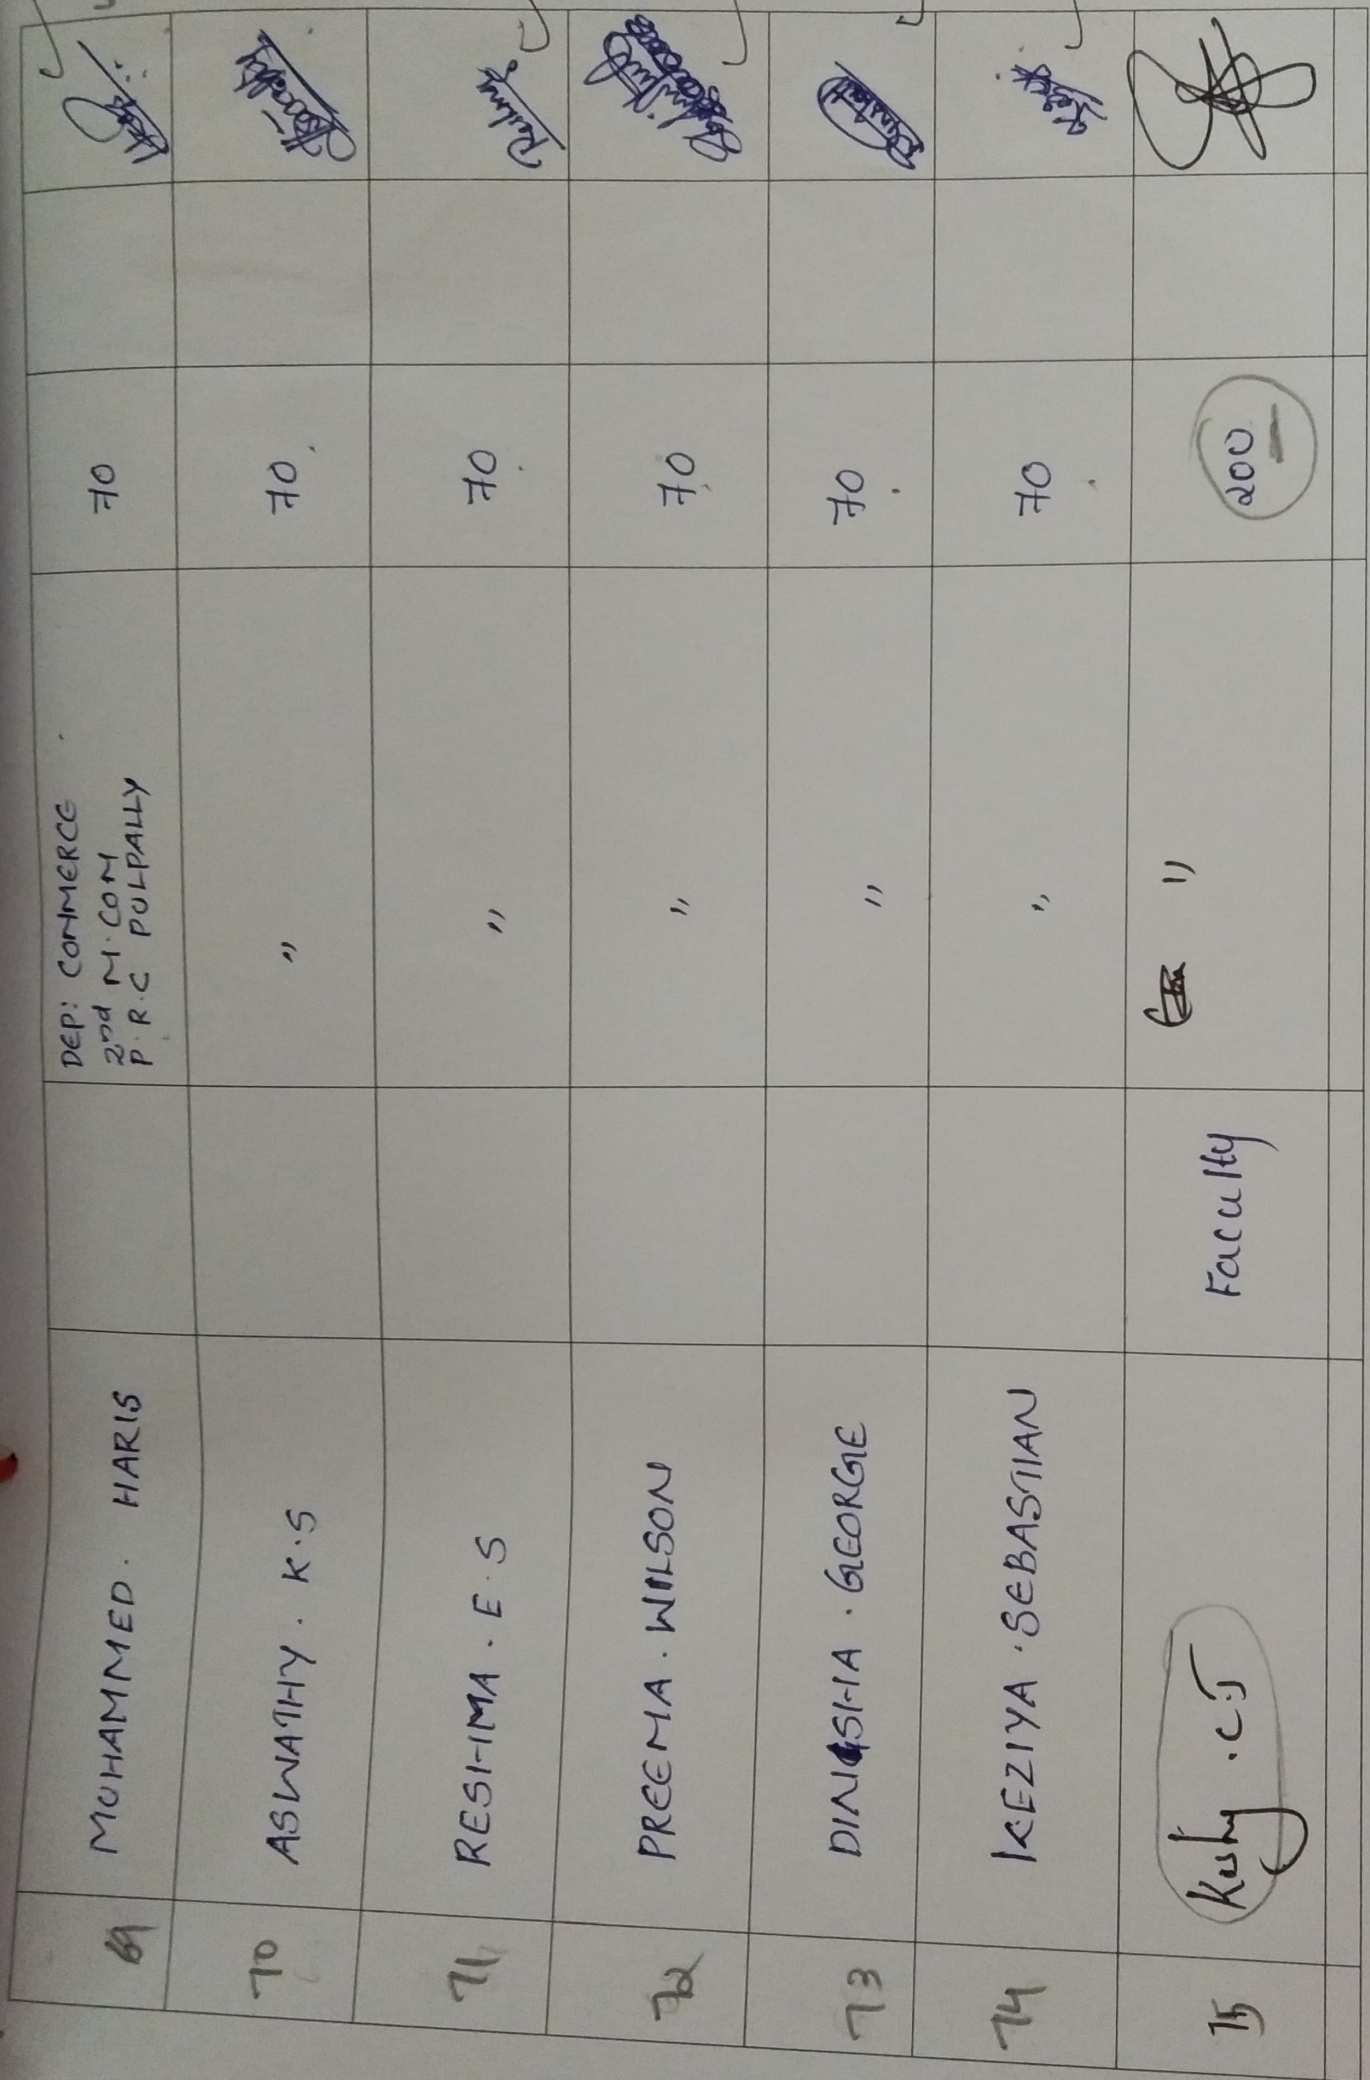 69 MUHAMMED. HARIS DEP: COMMERCE 70
2nd M.COM
P.R.C PULPALLY
70 ASWATHY. K.S " 70.
71 RESHMA. E.S " 70.
72 PREEMA. WILSON " 70
73 DINISHA. GEORGE " 70.
74 KEZIYA. SEBASTIAN " 70.
75 Faculty " 200